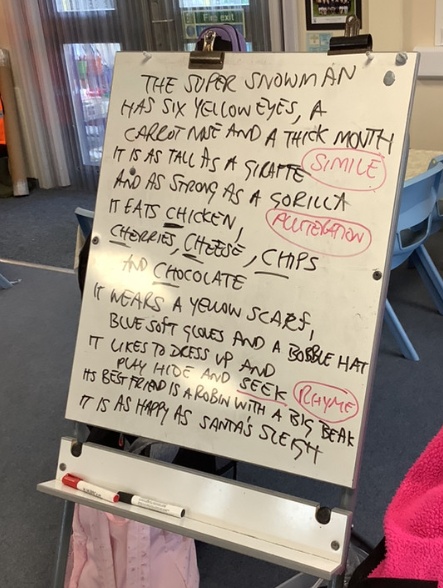 Fire exit
THE SUPER SNOWMAN
HAS SIX YELLOW EYES, A
CARROT NOSE AND A THICK MOUTH
IT IS AS TALL AS A GIRAFFE SIMILE
AND AS STRONG AS A GORILLA
IT EATS CHICKEN, ALLITERATION
CHERRIES, CHEESE, CHIPS
AND CHOCOLATE
IT WEARS A YELLOW SCARF,
BLUE SOFT GLOVES AND A BOBBLE HAT
IT LIKES TO DRESS UP AND
PLAY HIDE AND SEEK RHYME
ITS BEST FRIEND IS A ROBIN WITH A BIG BEAK
IT IS AS HAPPY AS SANTA'S SLEIGH